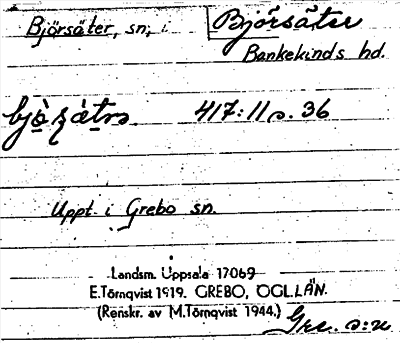 Björsäter, sn, i Björsäter
Bankekinds hd.
417:11 s. 36
Uppt. i Grebo sn.
Landsm. Uppsala 17069
E.Törnqvist 1919. GREBO, ÖGL.LÄN.
(Renskr. av M.Törnqvist 1944.)